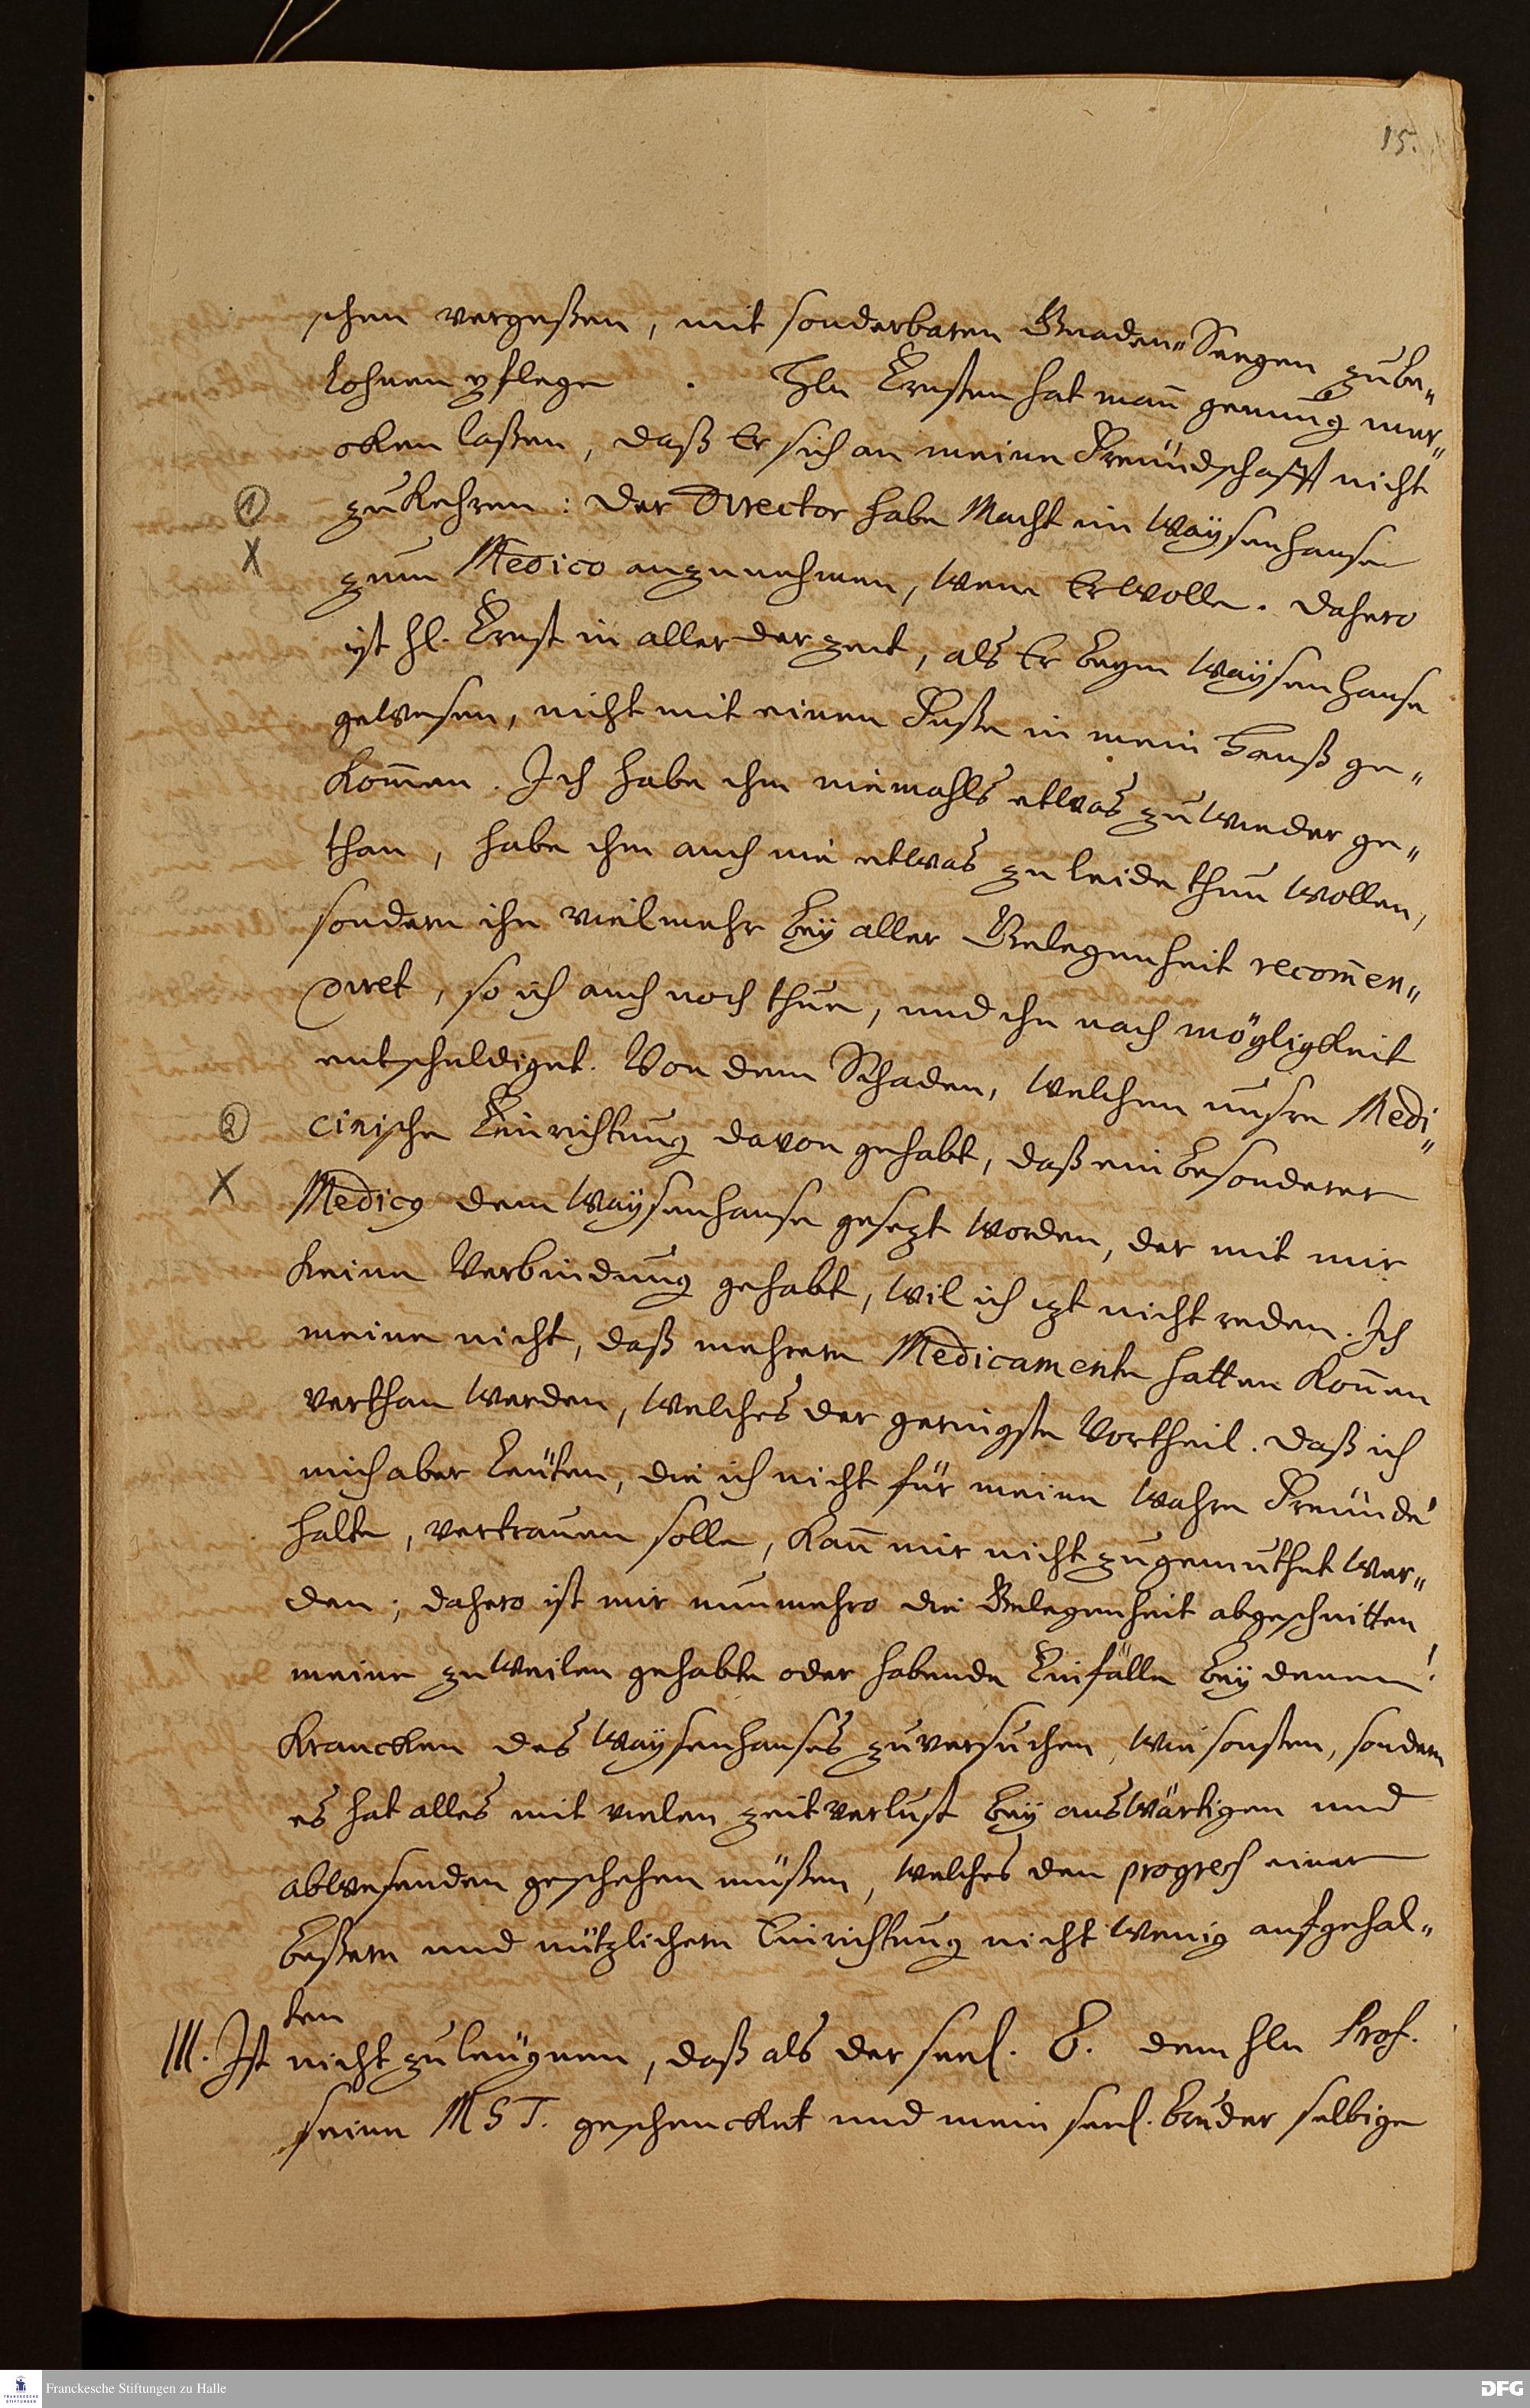 15.
schen vergeßen, mit sonderbaren Gnaden-Seegen zube-
lohnen pflege. Hln Ernsten hat mañ genung mer-
cken laßen, daß Er sich an meine Freundschafft nicht
① zukehren: der Director habe Macht im Waysenhause
X zum Medico anzunehmen, wem Er wolle. dahero
ist Hl. Ernst in aller der zeit, als Er beym Waysenhause
gewesen, nicht mit einen Fuße in mein Hauß ge-
kom̃en. Ich habe ihm niemahls etwas zuwieder ge-
than, habe ihm auch nie etwas zu leide thun wollen,
sondern ihn vielmehr bey aller Gelegenheit recom̃en-
diret, so ich auch noch thue, und ihn nach mögligkeit
entschuldiget. Von dem Schaden, welchen unsre Medi-
② cinische Einrichtung davon gehabt, daß ein besonderer
X Medicus dem Waysenhause gesezt worden, der mit mir
keine Verbindung gehabt, wil ich izt nicht reden. Ich
meine nicht, daß mehrere Medicamente hatten kon̄en
verthan werden, welches der geringste Vortheil. daß ich
mich aber Leuten, die ich nicht für meine wahre Freunde
halte, vertrauen solle, kañ mir nicht zugemuthet wer-
den; dahero ist mir nunmehro die Gelegenheit abgeschnitten
meine zuweilen gehabte oder habende Einfälle bey denen
Krancken des Waysenhauses zuversuchen, wie sonsten, sondern
es hat alles mit vielen zeitverlust bey auswärtigen und
abwesenden geschehen müßen, welches den progress einer
beßern und nützlichern Einrichtung nicht wenig aufgehal-
ten
III. Ist nicht zuleugnen, daß als der seel. B. dem Hln Prof.
seine MST. geschencket und mein seel. bruder selbige
Franckesche Stiftungen zu Halle
DFG